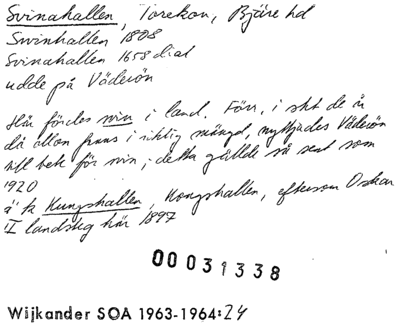 Svinahallen, Torekov, Bjäre hd
Svinhallen 1808
Svinahallen 1658 dial
udde på Väderön
Här fördes svin i land. Förr, i skt de år
då ollon fanns i riktig mängd, nyttjades Väderön
till bete för svin; detta gällde så sent som
1920
ä k Kungshallen, Kongshallen, eftersom Oskar
II landsteg här 1897
00031338
Wijkander SOA 1963-1964:24